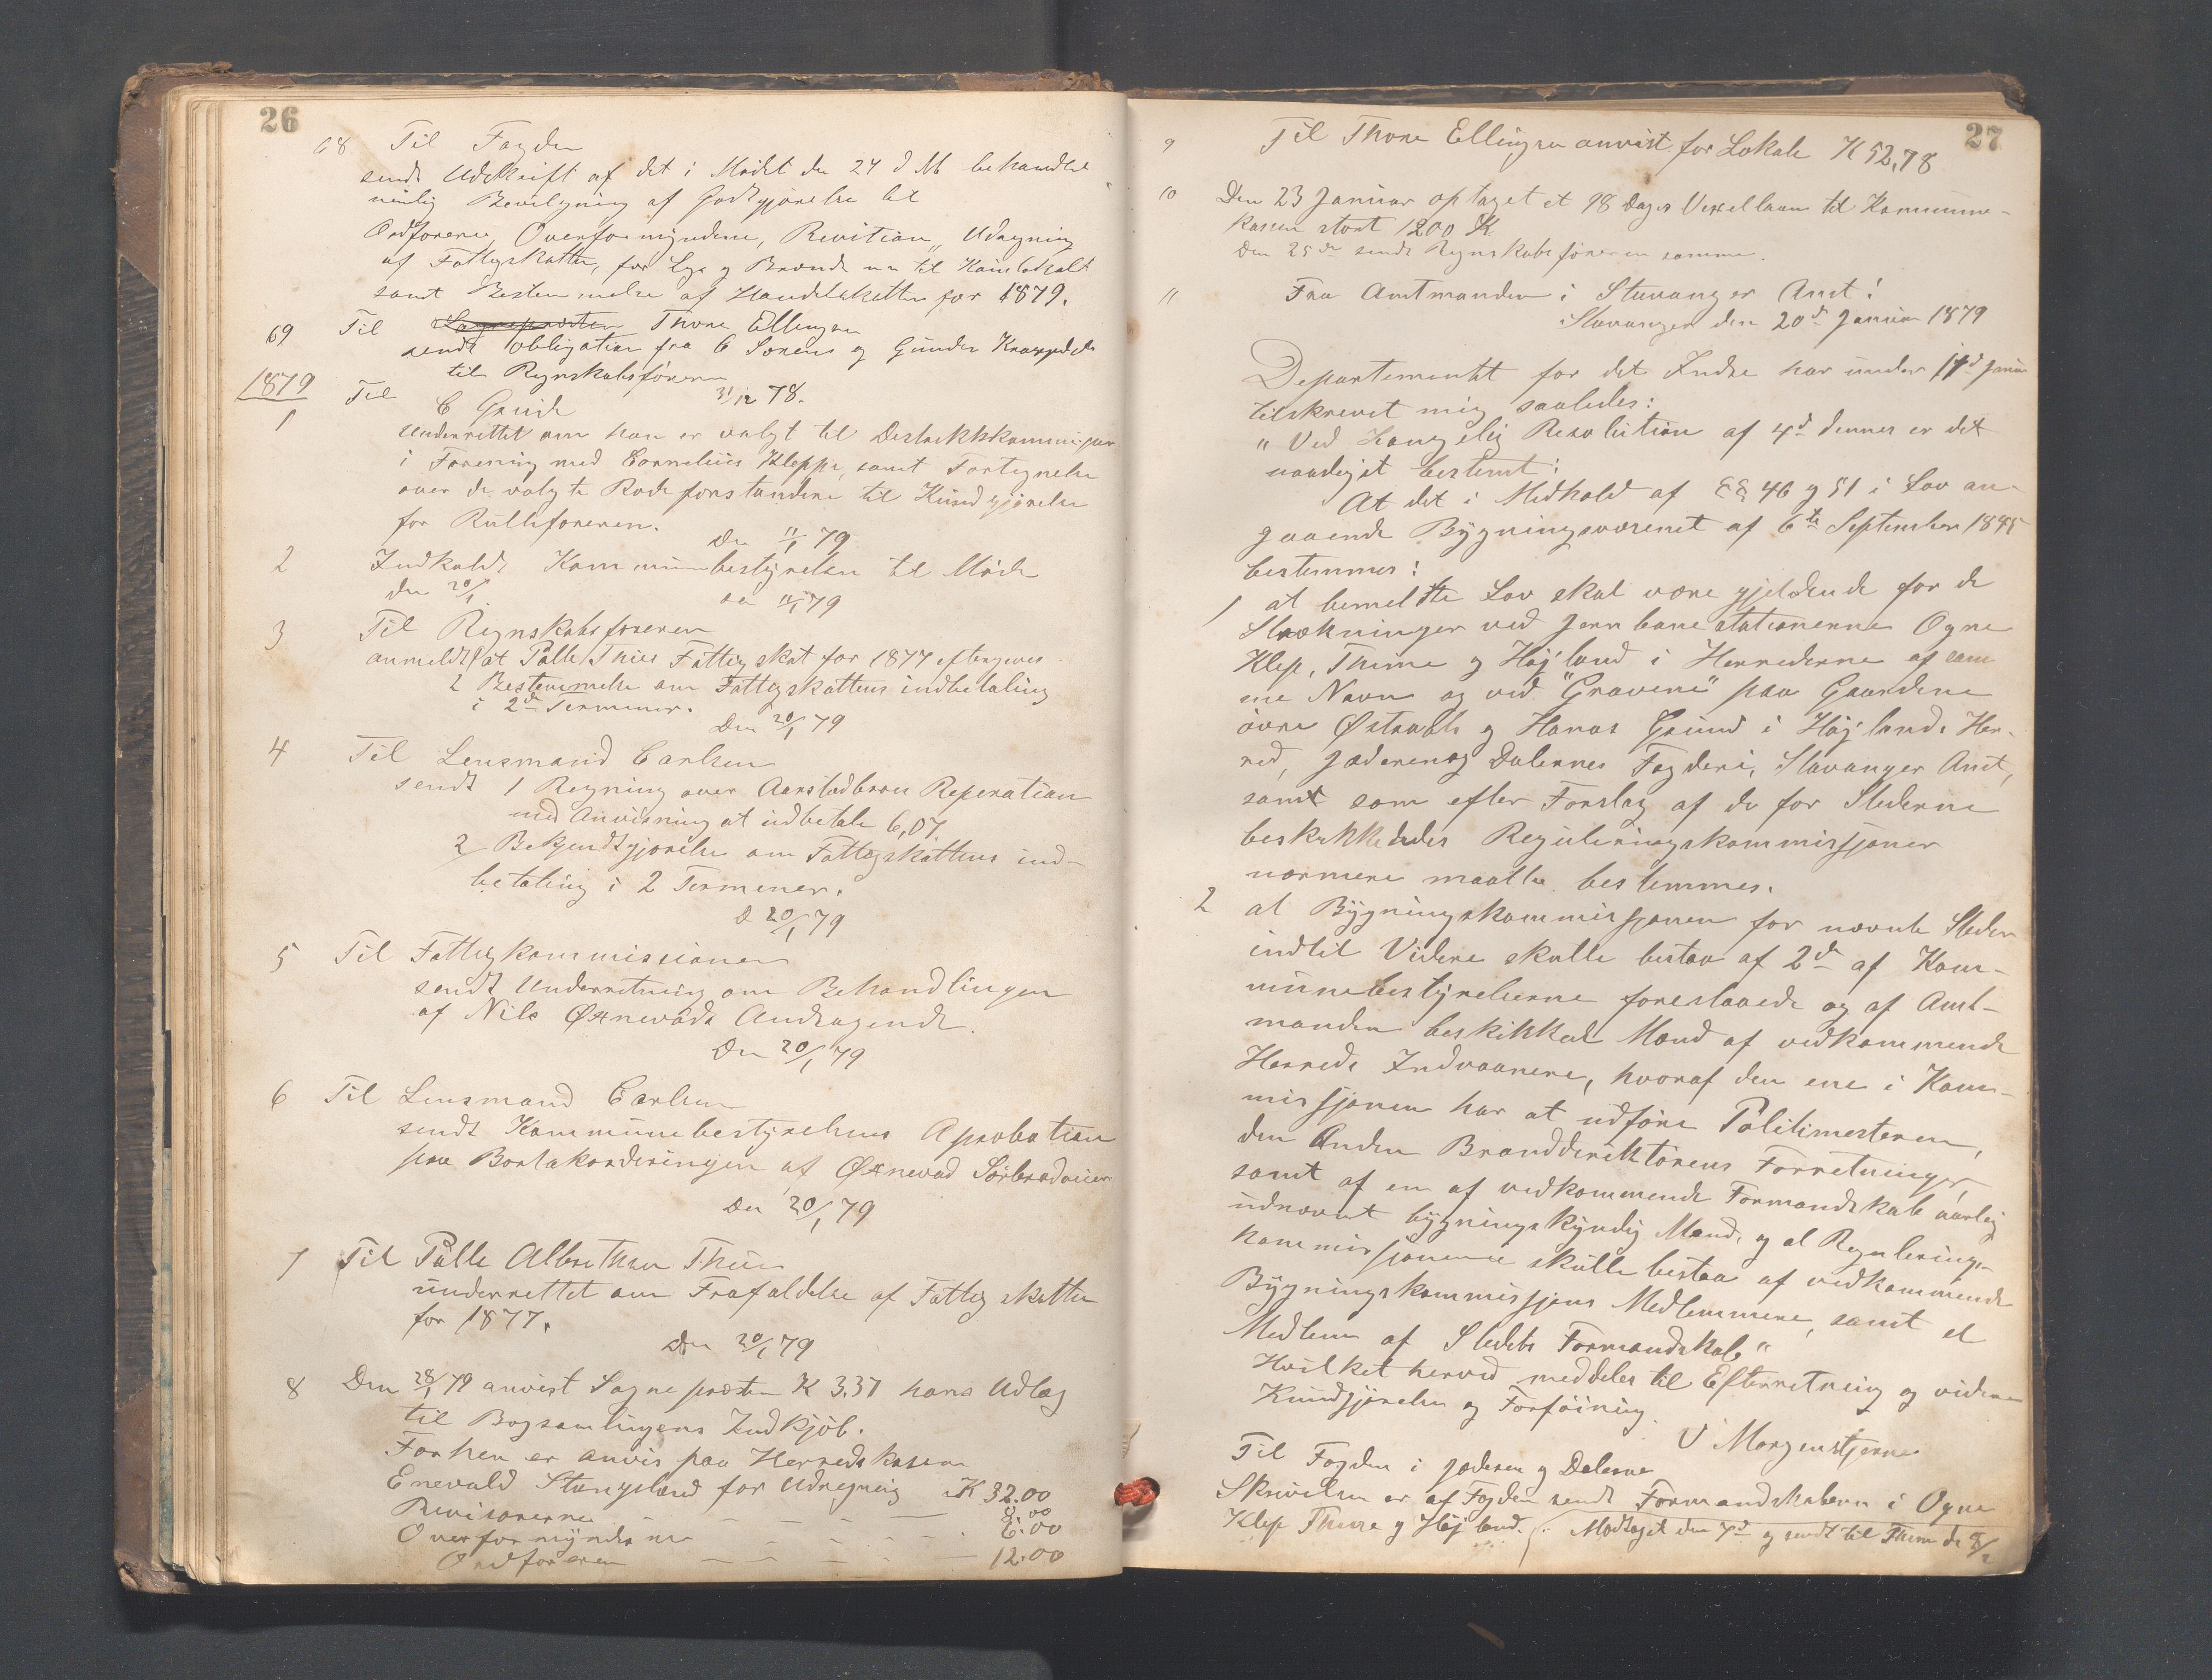 26
68 Til Fogden
sendt Udskrift af det i Mødet den 24 d M behandlet
nemlig Bevilgning af Godtgjørelse til
Ordføreren, Overformynderne, Revition, Udregning
af Fattigskatten, for Lys og Brænde til
samt Bestemmelse af Handelskatten for 1879.
69 Til Sognepræsten Thore Ellingsen
sendt Obligation fra C Sørens og Gunder
til Regnskabsføreren 31/12 78.
1879
1 Til C Grude
Underrettet om han er valgt til
i Forening med Cornelius Kleppe, samt Fortegnelse
over de valgte Rodeforstandere til Kundgjørelse
for Rulleføreren.
Den 11/1 79
2 Indkaldt Kommunebestyrelsen til Møde
den 20/1 den 11/1 79
3 Til Regnskabsføreren
anmeldt 1 at Palle Thies Fattigskat for 1877 eftergives
2 Bestemmelse om Fattigskattens indbetaling
i 2de Terminer.
Den 20/1 79
4 Til Lensmand Carlsen
sendt 1 Regning over Aarstadbroens Reperation
med Anvisning at udbetale 6,07.
2 Bekjendtgjørelse om Fattigskattens ind-
betaling i 2 Terminer.
d 20/1 79
5 Til Fattigkommissionen
sendt Underretning om Behandlingen
af Nils Øxnevads Andragende.
Den 20/1 79
6 Til Lensmand Carlsen
sendt Kommunebestyrelsens Aprobation
paa Bortakorderingen af Øxnevad
Den 20/1 79
7 Til Palle Albretsen Thies
underrettet om Frafaldelse af Fattigskatten
for 1877.
Den 20/1 79
8 Den 28/1 79 anvist Sognepræsten K 3.37 hans Udlæg
til Bogsamlingens Indkjøb.
Forhen er anvis paa Herredskassen
Enevald Stangeland for Udregning K 32.00
Revisorerne 8.00
Overformynderne 6.00
Ordføreren 12.00
27
9 Til Thore Ellingsen anvist for Lokale K 52,78
10 Den 23 Januar optaget et 98 Dages Vexellaan til Kommune-
kassen stort 1200 K
Den 25de sendt Regnskabsføreren samme.
11 Fra Amtmanden i Stavanger Amt!
Stavanger den 20d Januar 1879
Departementet for det Indre har under 14d Januar
tilskrevet mig saaledes:
"Ved Kongelig Resolution af 4d dennes er det
naadigst bestemt:
At det i Medhold af §§ 46 og 51 i Lov an-
gaaende Bygningsvæsenet af 6te September 1845
bestemmes:
1 at bemeldte Lov skal være gjeldende for de
Strækninger ved Jernbanestationerne Ogne
Klep, Thime og Højland i Herrederne af sam
me Navn og ved "Gravene" paa Gaardene
øvre Østraadt og Hanas Grund i Højlands Her-
red, Jæderen og Dalernes Fogderi, Stavanger Amt,
samt som efter Forslag af de for Stederne
beskikkendes Reguleringskommissjoner
nærmere maatte bestemmes.
2 at Bygningskommissjonen for nævnte Steder
indtil Videre skulle bestaa af 2de af Kom-
munebestyrelserne foreslaaede og af Amt-
manden beskikkede Mænd af vedkommende
Herreds Indvaanere, hvoraf den ene i Kom-
missjonen har at udføre Politimesteren,
den Anden Branddirektørens Forretninger,
samt af en af vedkommende Formandskab aarlig
udnævnt bygningskyndig Mand, og at Regulerings-
kommissjonerne skulle bestaa af vedkommende
Bygningskommissjons Medlemmer, samt et
Medlem af Stedets Formandskab"
Hvilket herved meddeles til Efterretning og videre
Kundgjørelse og Forføining.
V Morgenstjerne
Til Fogden i Jæderen og Dalerne
Skrivelsen er af Fogden sendt Formandskabern i Ogne
Klep Thime og Højland. Modtaget den 7d og sendt til Thime de 8/2